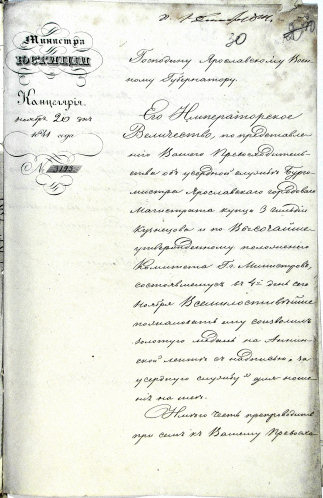 30
Министра
ЮСТИЦІИ
Канцелярія.
ноября 20 дня
1841 года
№ 3193
Господину Ярославскому Воен-
ному Губернатору.
Его Императорское
Величество, по представле-
нію Вашего Превосходитель-
ства объ усердной службѣ Бурго-
мистра Ярославскаго городоваго
Магистрата купца 3 гильдіи
Кузнецова и по Высочайше
утвержденному положенію
Комитета Гг. Министровъ,
состоявшемуся въ 4й день сего
Ноября Всемилостивѣйше
пожаловать ему соизволилъ
золотую медаль на Аннин-
ской лентѣ съ надписью „за
усердную службу" для ноше-
нія на шеѣ.
Имѣю честь препроводить
при семъ къ Вашему Превосхо-